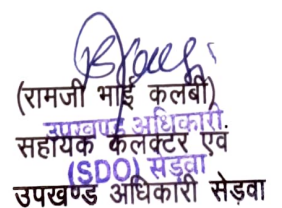 (रामजी भाई कलबी)
उपखण्ड अधिकारी
सहायक कलेक्टर एवं
(SDO) सेडवा
उपखण्ड अधिकारी सेड़वा